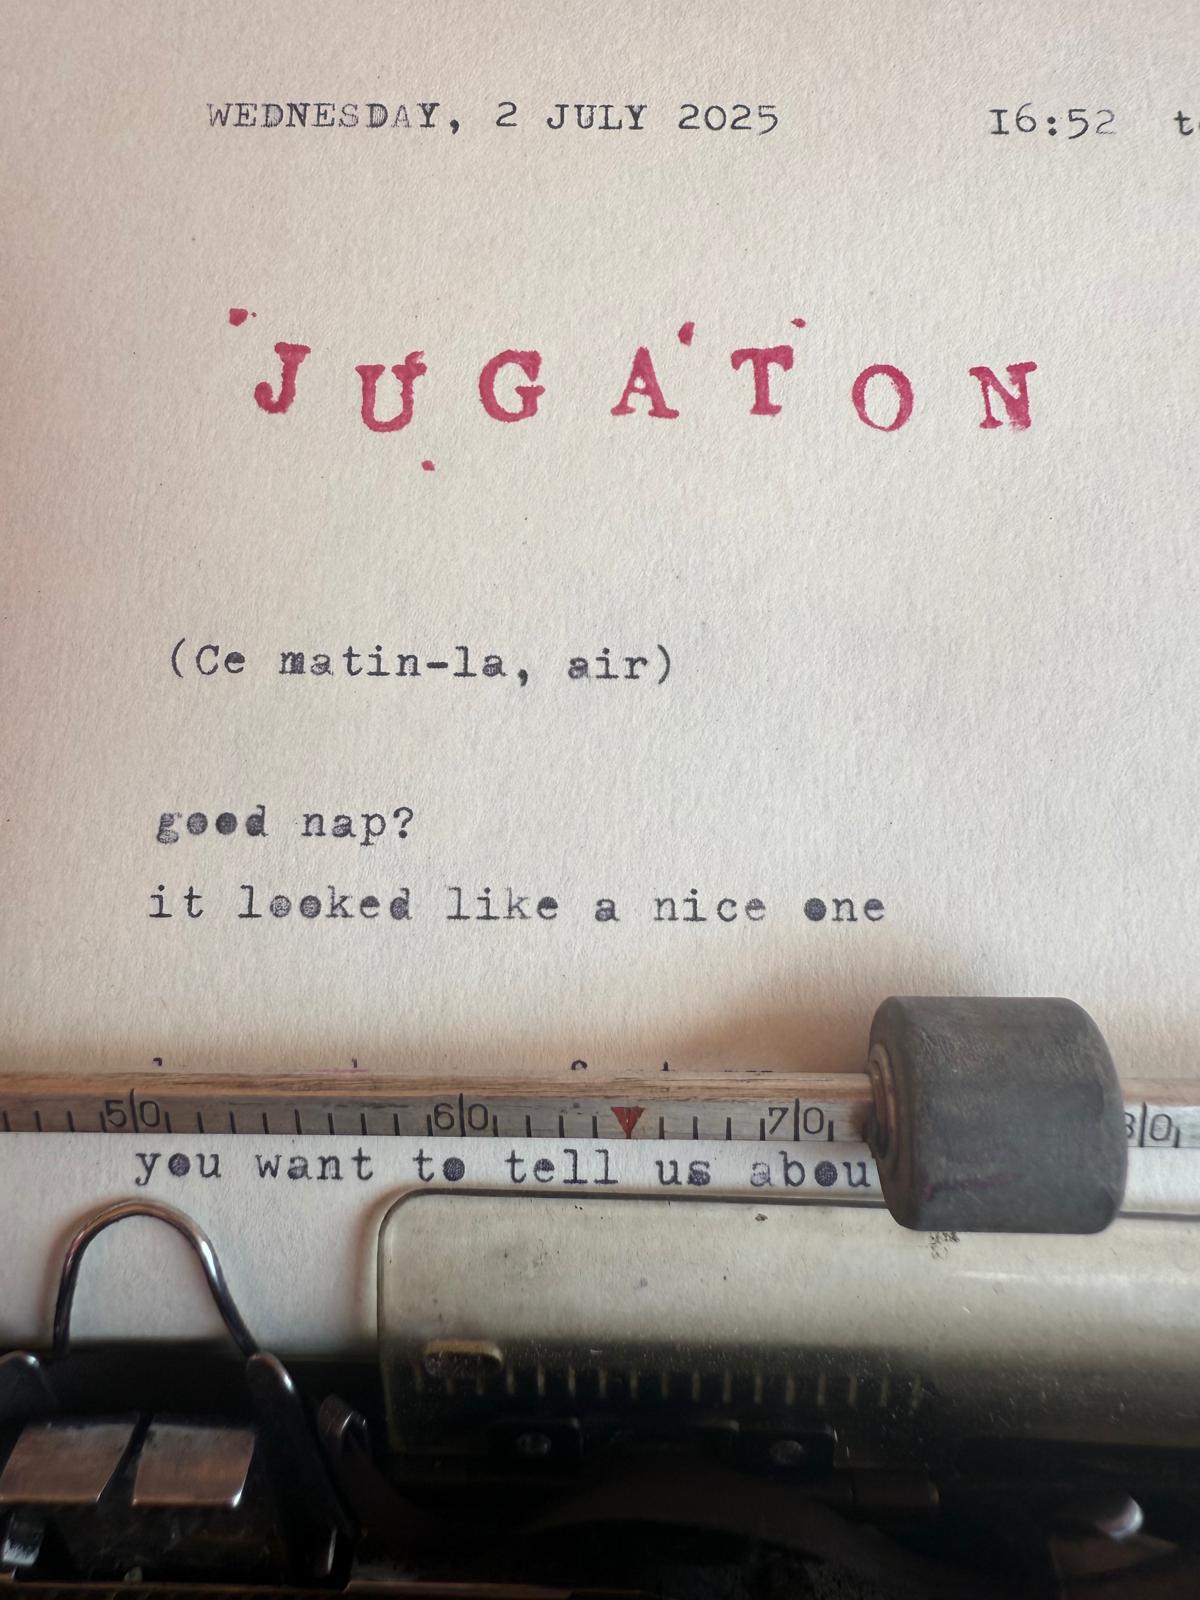 WEDNESDAY, 2 JULY 2025 16:52
JUGATON
(Ce matin-la, air)
good nap?
it looked like a nice one
50 60 70 80
you want to tell us